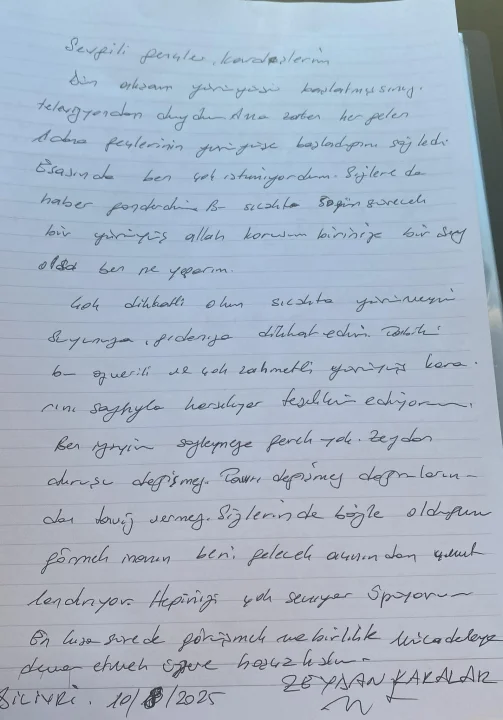 Sevgili gençler, kardeşlerim
Dün akşam yürüyüşü başlatmışsınız.
televizyondan duydum Ama zaten her gelen
Adana gençlerinin yürüyüşe başladığını söyledi.
Esasında ben çok istemiyordum. Sizlere de
haber gönderdim Bu sıcakta 8 gün sürecek
bir yürüyüş allah korusun birinize bir şey
olsa ben ne yaparım.
Çok dikkatli olun sıcakta yürümeyin
Suyunuza, gıdanıza dikkat edin. Tabiki
bu özverili ve çok zahmetli yürüyüş kara-
rını saygıyla karşılıyor teşekkür ediyorum.
Ben iyiyim söylemeye gerek yok. Zeydan
duruşu değişmez. Tavrı değişmez doğruların-
dan taviz vermez. Sizlerinde böyle olduğunu
görmek inanın beni gelecek açısından umut
landırıyor. Hepinizi çok seviyor öpüyorum
En kısa sürede görüşmek ve birlikte mücadeleye
devam etmek üzere hoşça kalın.
SİLİVRİ. 10/8/2025 ZEYDAN KARALAR